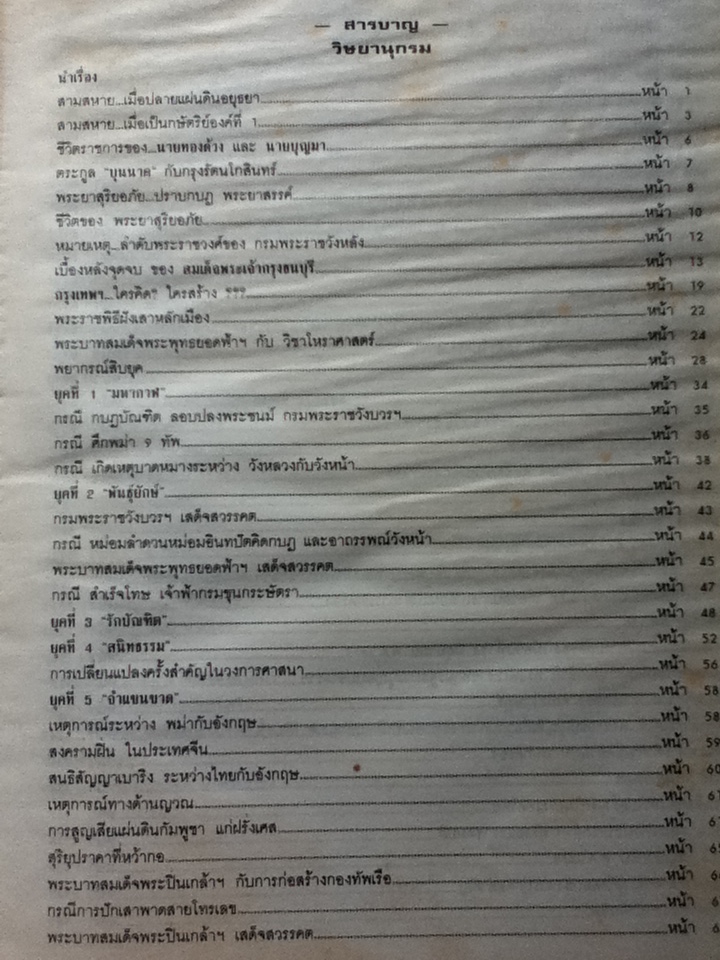 — สารบาญ —
วิษยานุกรม
นำเรื่อง
สามสหาย...เมื่อปลายแผ่นดินอยุธยา...หน้า 1
สามสหาย...เมื่อเป็นกษัตริย์องค์ที่ 1...หน้า 3
ชีวิตราชการของ...นายทองด้วง และ นายบุญมา...หน้า 6
ตระกูล "บุนนาค" กับกรุงรัตนโกสินทร์...หน้า 7
พระยาสุริยอภัย...ปราบกบฏ พระยาสรรค์...หน้า 8
ชีวิตของ พระยาสุริยอภัย...หน้า 10
หมายเหตุ...ลำดับพระราชวงศ์ของ กรมพระราชวังหลัง...หน้า 12
เบื้องหลังจุดจบ ของ สมเด็จพระเจ้ากรุงธนบุรี...หน้า 13
กรุงเทพฯ...ใครคิด? ใครสร้าง ???...หน้า 19
พระราชพิธีฝังเสาหลักเมือง...หน้า 22
พระบาทสมเด็จพระพุทธยอดฟ้าฯ กับ วิชาโหราศาสตร์...หน้า 24
พยากรณ์สิบยุค...หน้า 28
ยุคที่ 1 "มหากาฬ"...หน้า 34
กรณี กบฏบัณฑิต ลอบปลงพระชนม์ กรมพระราชวังบวรฯ...หน้า 35
กรณี ศึกพม่า 9 ทัพ...หน้า 36
กรณี เกิดเหตุบาดหมางระหว่าง วังหลวงกับวังหน้า...หน้า 38
ยุคที่ 2 "พันธุ์ยักษ์"...หน้า 42
กรมพระราชวังบวรฯ เสด็จสวรรคต...หน้า 43
กรณี หม่อมลำดวนหม่อมอินทปัตคิดกบฏ และอาถรรพณ์วังหน้า...หน้า 44
พระบาทสมเด็จพระพุทธยอดฟ้าฯ เสด็จสวรรคต...หน้า 45
กรณี สำเร็จโทษ เจ้าฟ้ากรมขุนกระษัตรา...หน้า 47
ยุคที่ 3 "รักบัณฑิต"...หน้า 48
ยุคที่ 4 "สนิทธรรม"...หน้า 52
การเปลี่ยนแปลงครั้งสำคัญในวงการศาสนา...หน้า 56
ยุคที่ 5 "จำแขนขาด"...หน้า 58
เหตุการณ์ระหว่าง พม่ากับอังกฤษ...หน้า 58
สงครามฝิ่น ในประเทศจีน...หน้า 59
สนธิสัญญาเบาริง ระหว่างไทยกับอังกฤษ...หน้า 60
เหตุการณ์ทางด้านญวณ...หน้า 61
การสูญเสียแผ่นดินกัมพูชา แก่ฝรั่งเศส...หน้า 6
สุริยุปราคาที่หว้ากอ...หน้า 65
พระบาทสมเด็จพระปิ่นเกล้าฯ กับการก่อสร้างกองทัพเรือ...หน้า 6
กรณีการปักเสาพาดสายโทรเลข...หน้า 6
พระบาทสมเด็จพระปิ่นเกล้าฯ เสด็จสวรรคต...หน้า 6